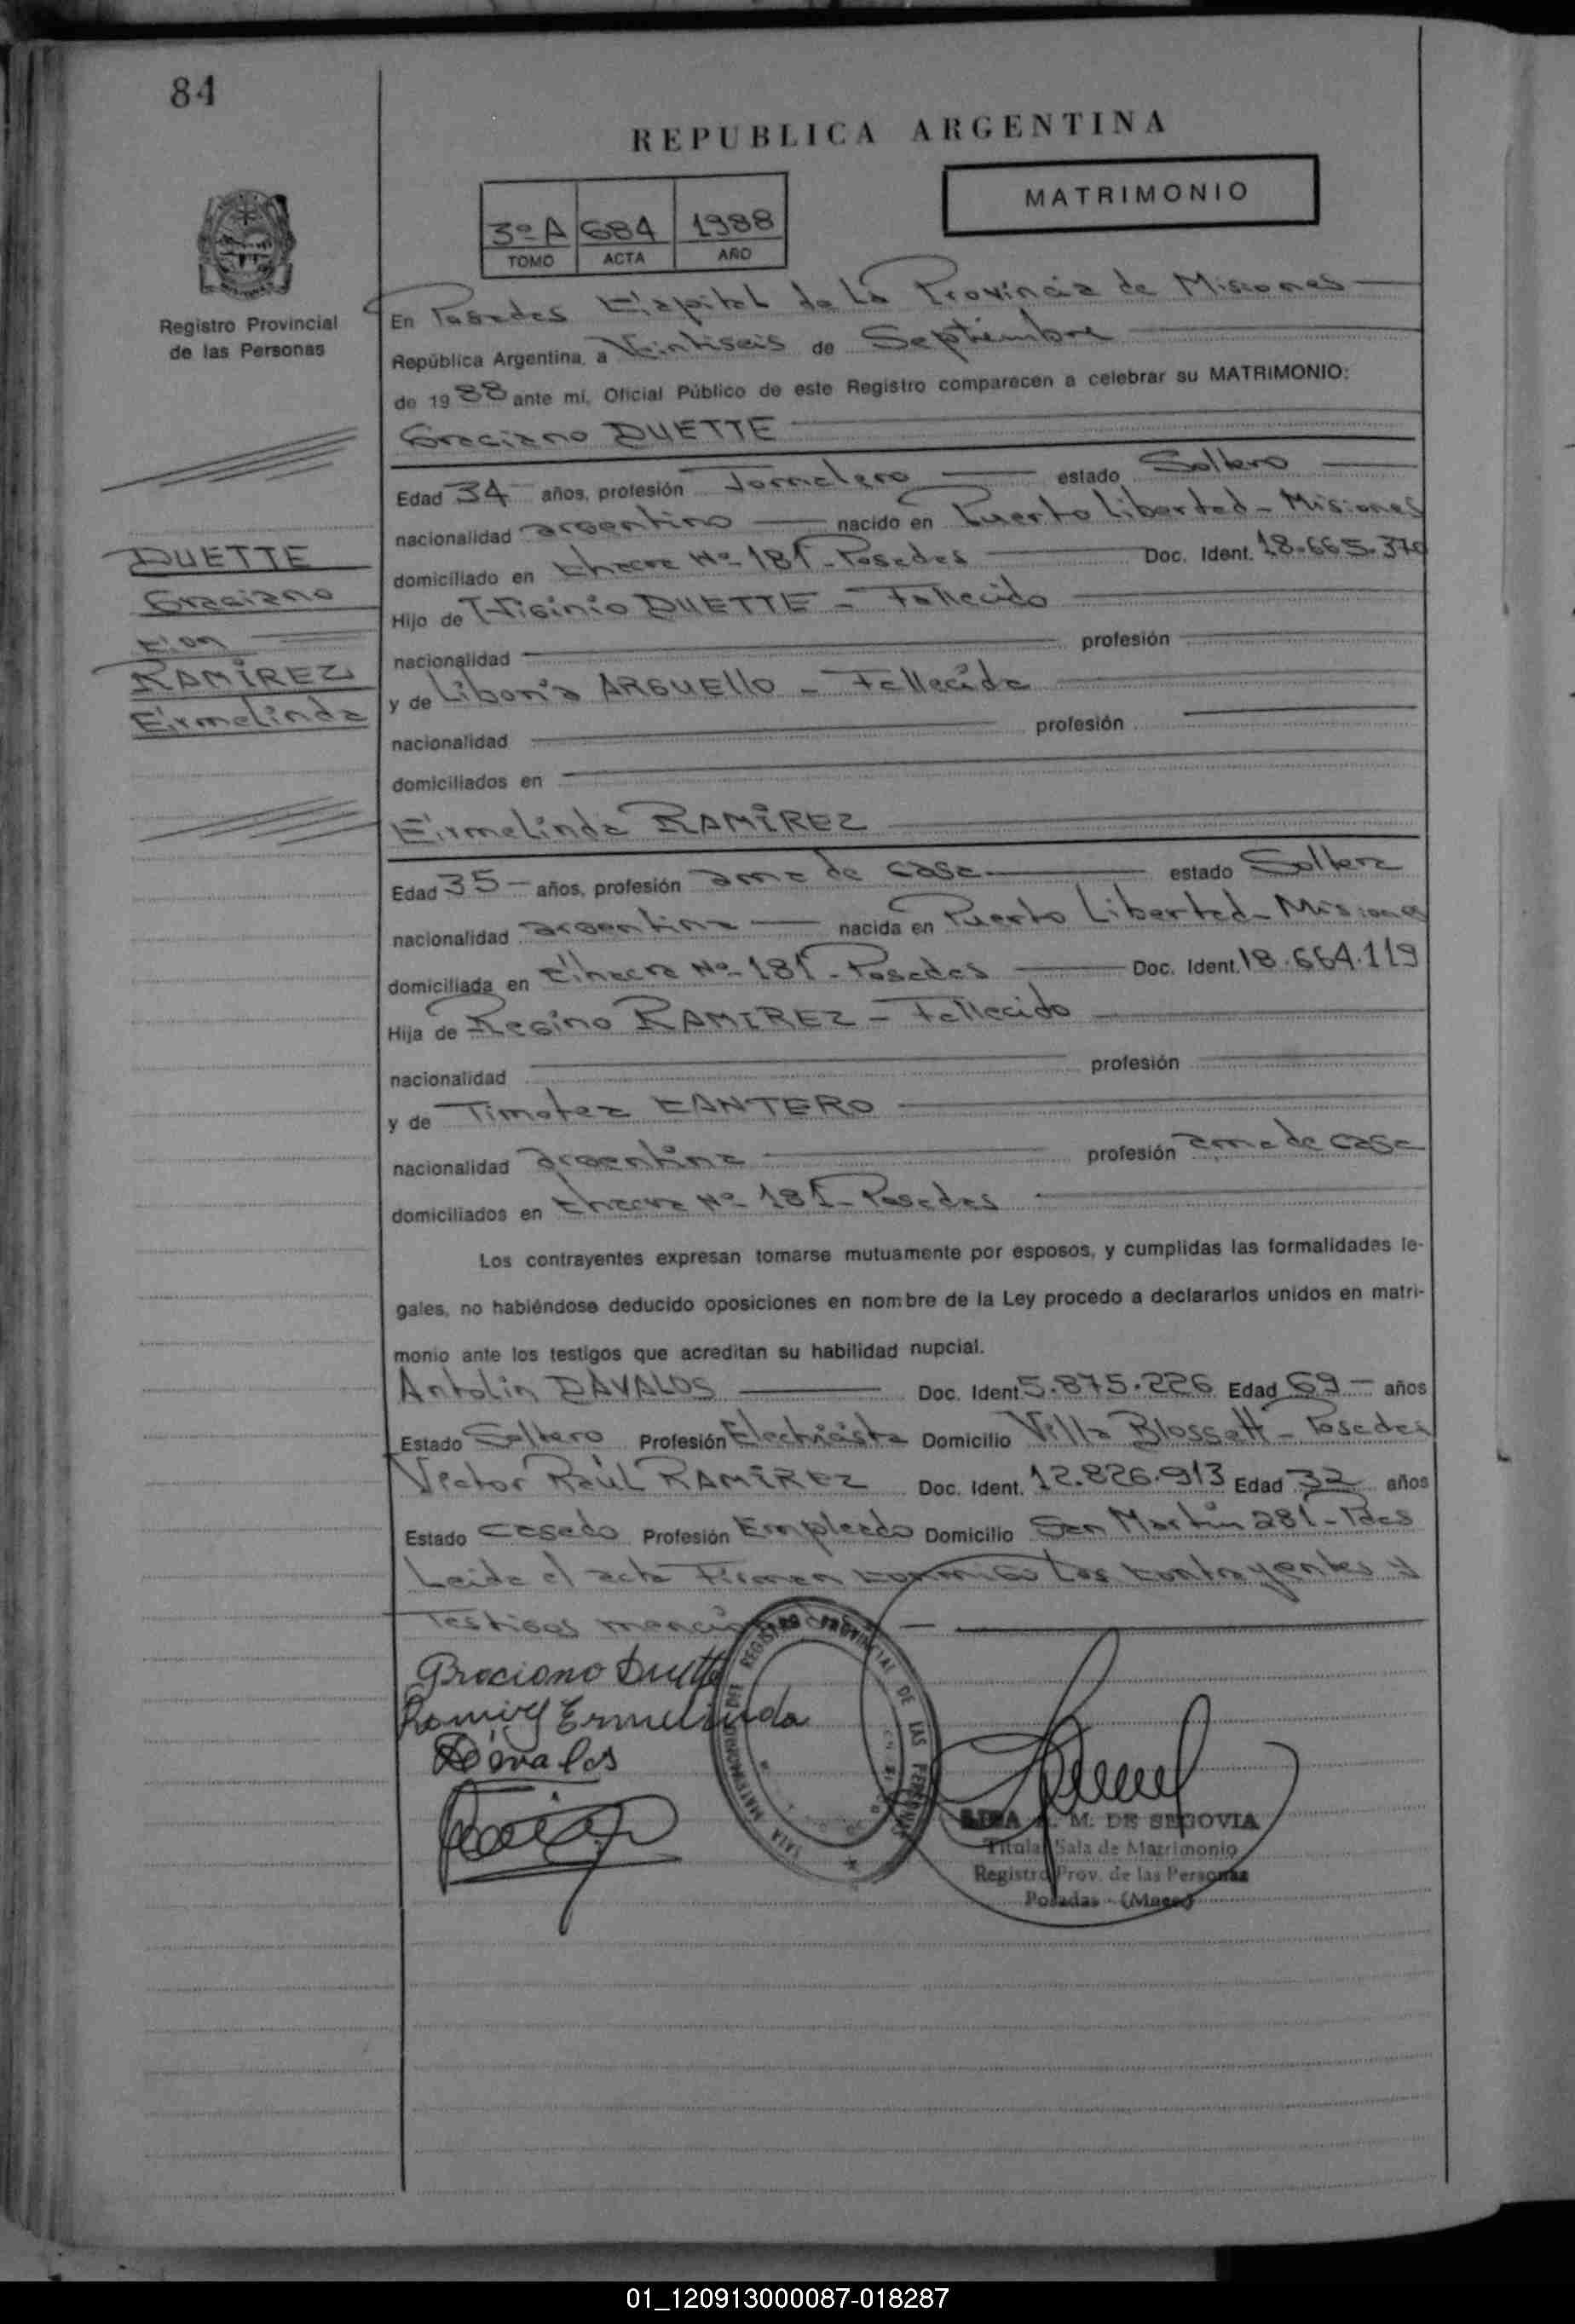 84
REPUBLICA ARGENTINA
MATRIMONIO
3º A 684 1988
TOMO ACTA AÑO
Registro Provincial
de las Personas
En Posadas Capital de La Provincia de Misiones
República Argentina, a Veintiseis de Septiembre
de 1988 ante mí, Oficial Público de este Registro comparecen a celebrar su MATRIMONIO:
Graciano DUETTE
Edad 34 años, profesión Jornalero estado Soltero
nacionalidad argentino nacido en Puerto Libertad - Misiones
domiciliado en Chacra Nº 181 - Posadas Doc. Ident. 18.665.370
Hijo de Higinio DUETTE - Fallecido
nacionalidad profesión
y de Liboria ARGUELLO - Fallecida
nacionalidad profesión
domiciliados en
DUETTE
Graciano
Con
RAMIREZ
Ermelinda
Ermelinda RAMIREZ
Edad 35 años, profesión ama de casa estado Soltera
nacionalidad argentina nacida en Puerto Libertad - Misiones
domiciliada en Chacra Nº 181 - Posadas Doc. Ident. 18.664.119
Hija de Regino RAMIREZ - Fallecido
nacionalidad profesión
y de Timotea CANTERO
nacionalidad argentina profesión ama de casa
domiciliados en Chacra Nº 181 - Posadas
Los contrayentes expresan tomarse mutuamente por esposos, y cumplidas las formalidades le-
gales, no habiéndose deducido oposiciones en nombre de la Ley procedo a declararlos unidos en matri-
monio ante los testigos que acreditan su habilidad nupcial.
Antolin DAVALOS Doc. Ident 5.875.226 Edad 69 años
Estado Soltero Profesión Electricista Domicilio Villa Blossett - Posadas
Victor Raúl RAMIREZ Doc. Ident. 12.826.913 Edad 32 años
Estado Casado Profesión Empleado Domicilio San Martin 281 - Pdas
Leida el acta Firman conmigo Los contrayentes y
Testigos mencionados
Graciano Duette
Ramirez Ermelinda
Dávalos
SALA MATRIMONIOS DEL REGISTRO PROVINCIAL DE LAS PERSONAS
M. DE SEGOVIA
Titular Sala de Matrimonio
Registro Prov. de las Personas
Posadas - (Mnes)
01_120913000087-018287